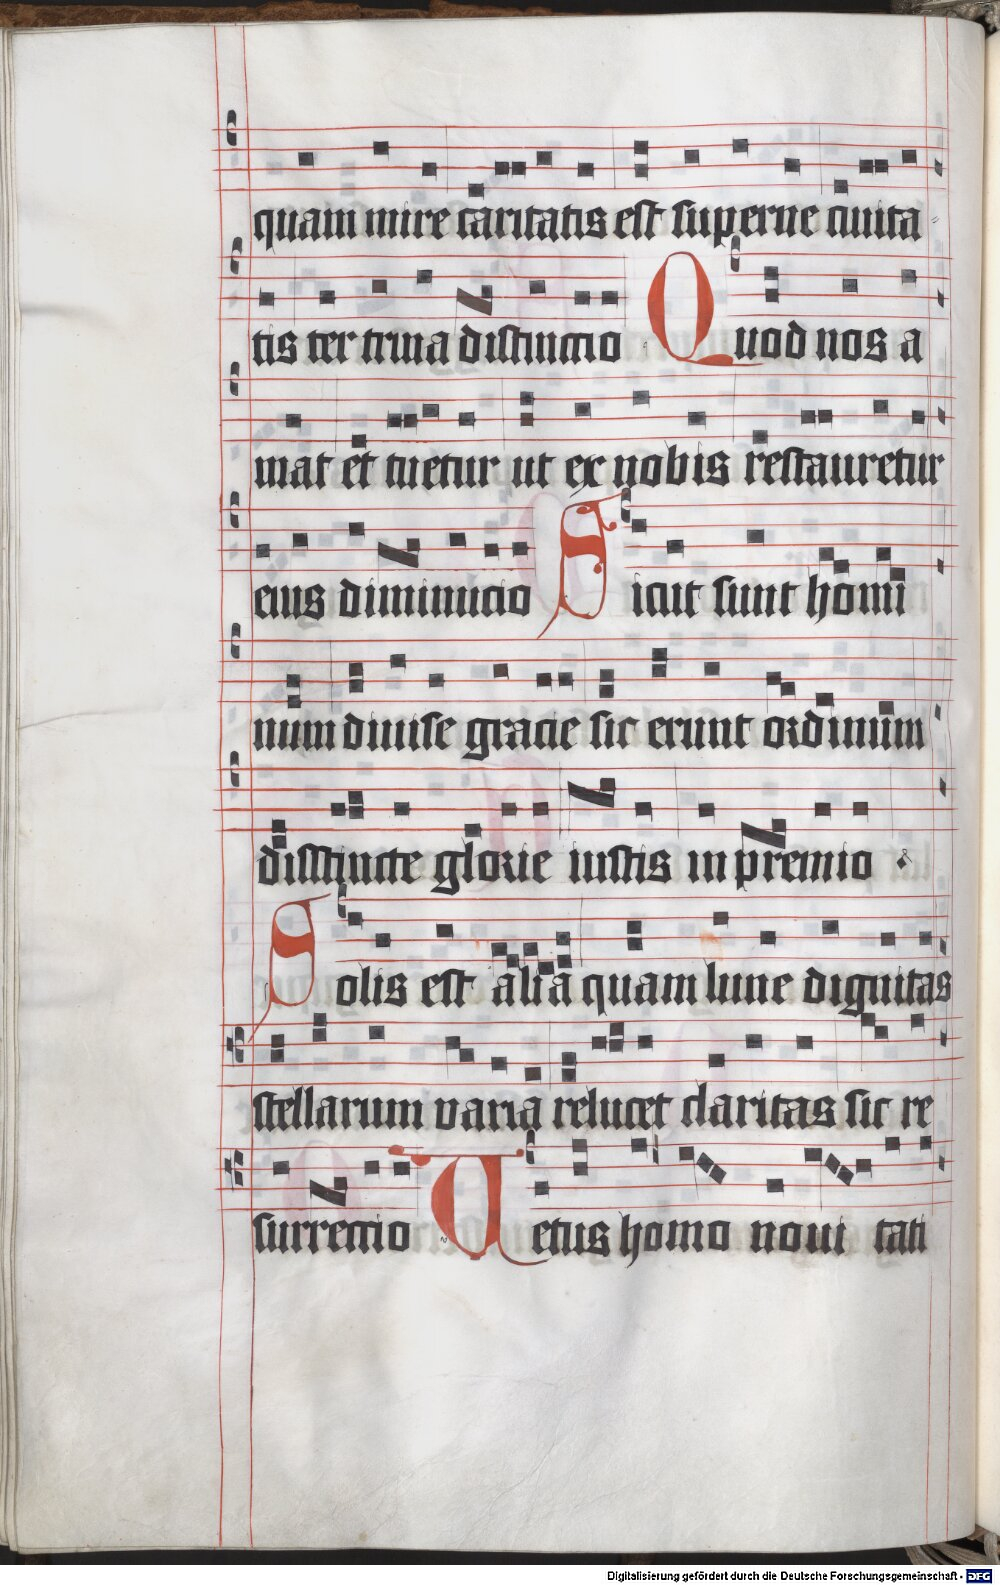 quam mire caritatis est superne ciuita
tis ter trina distinctio Quod nos a
mat et tuetur ut ex nobis restauretur
eius diminucio Sicut sunt homi
num diuise gracie sic erunt ordinum
disstincte glorie iustis in premio
Solis est alia quam lune dignitas
stellarum varia relucet claritas sic re
surrectio Uetus homo noui tati
Digitalisierung gefördert durch die Deutsche Forschungsgemeinschaft - DFG